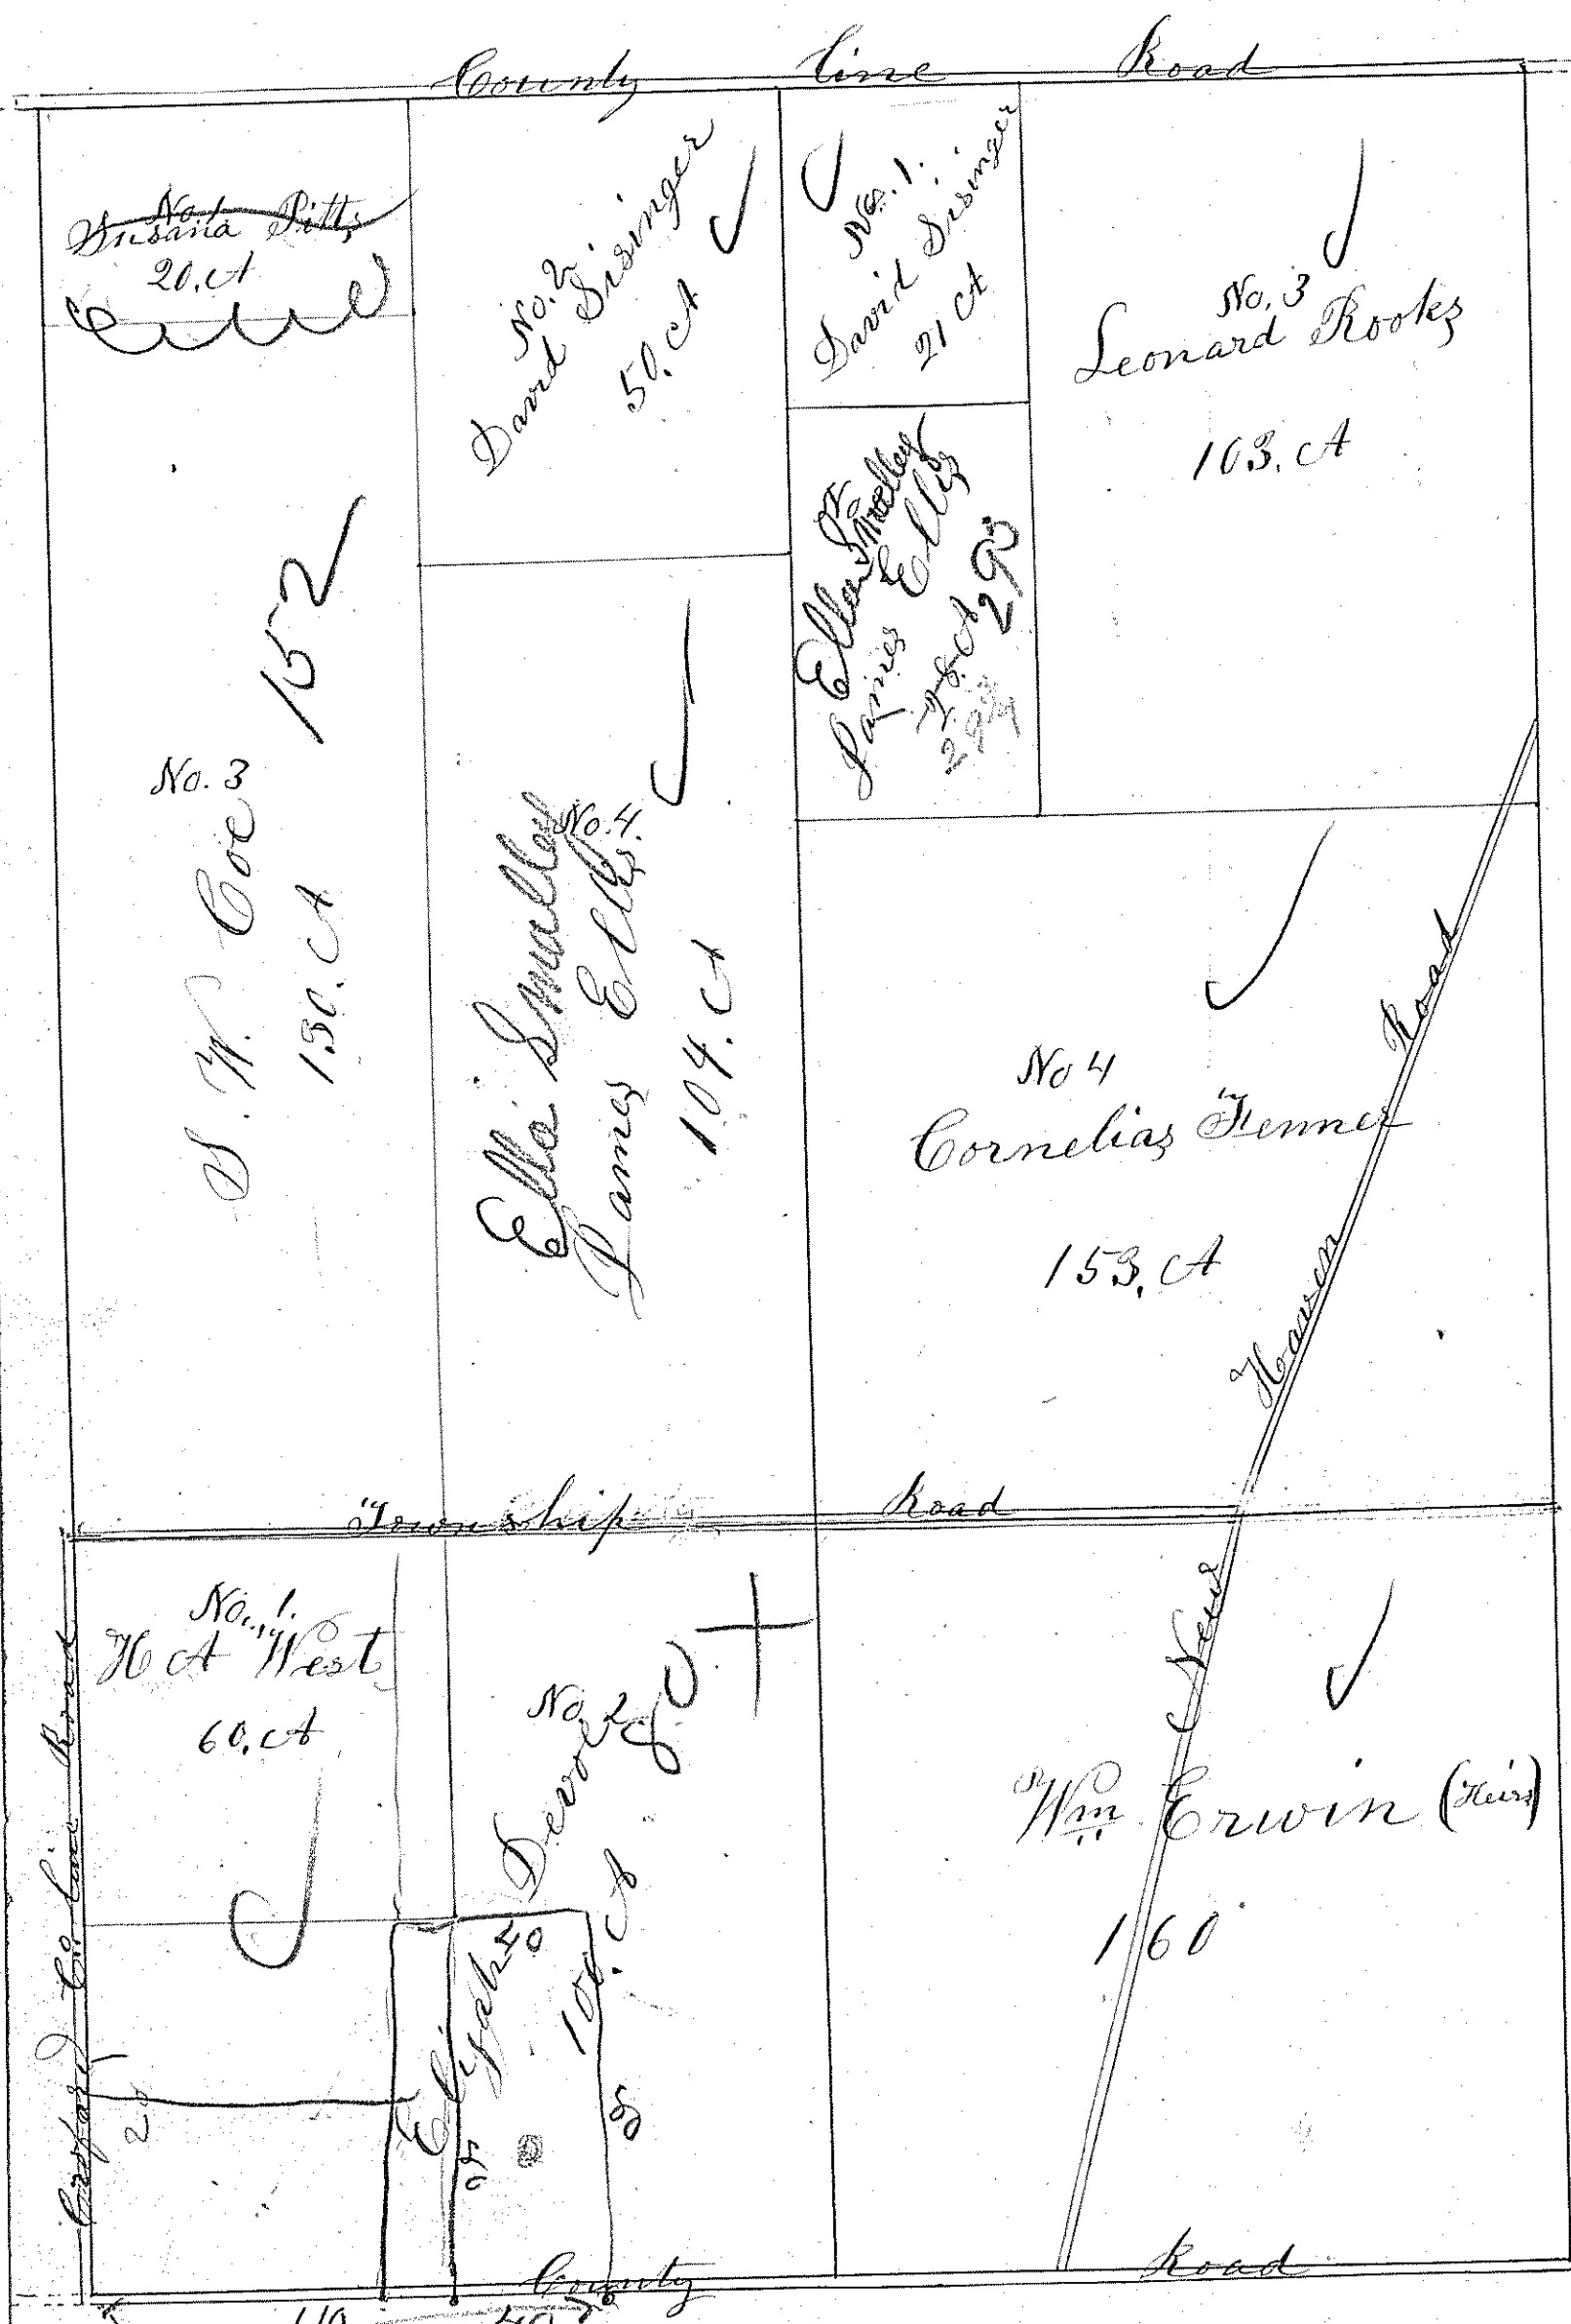 County Line Road
No. 1
Susana Pitts
20. A
No. 2
David Sisinger
50. A
No. 1.
David Sisinger
21 A
No. 3
Leonard Rooks
103. A
No
Ella Smalley
James Ellis
28. A
29
No. 3
S. W. Coe
152
130. A
No. 4.
Ella Smalley
James Ellis
104. A
No 4
Cornelias Fenner
153. A
New Haven Road
Township Road
No. 1.
H A West
60. A
No. 2
Elijah Devoe
80
100. A
Wm Erwin (Heirs)
160
20
Co. Line Road
County Road
40
40